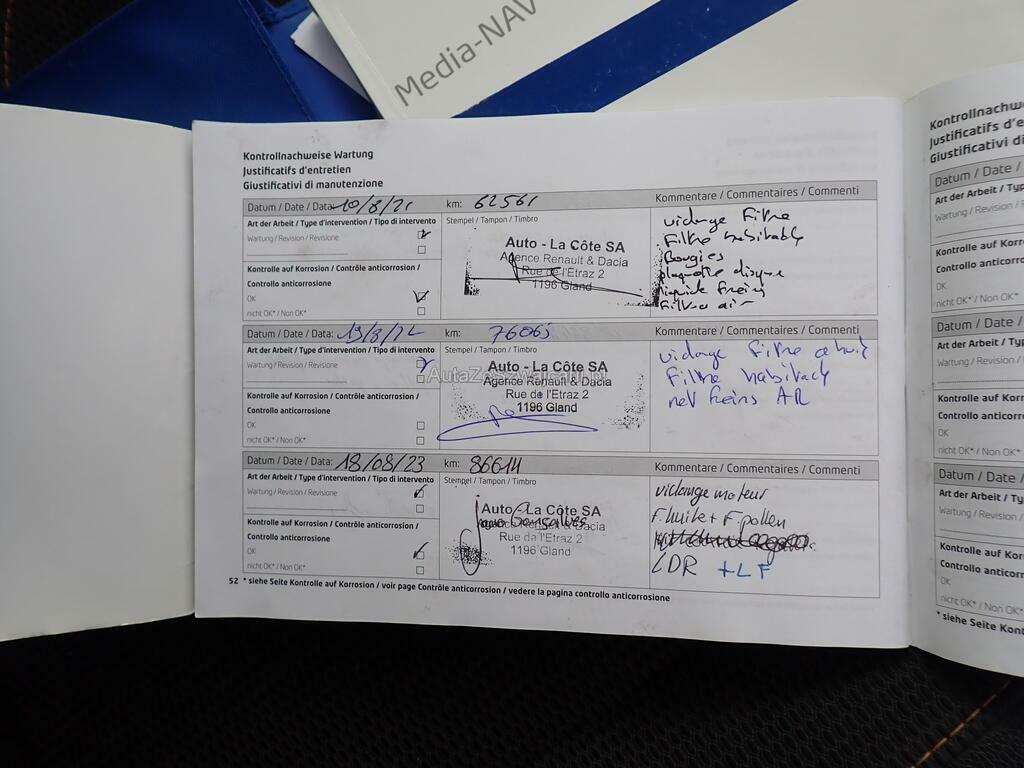 Media-NAV
Kontrollnachweise Wartung
Justificatifs d'entretien
Giustificativi di manutenzione
Datum / Date / Data: 10/8/21 km: 62561 Kommentare / Commentaires / Commenti
Art der Arbeit / Type d'intervention / Tipo di intervento
Wartung / Revision / Revisione
Kontrolle auf Korrosion / Contrôle anticorrosion /
Controllo anticorrosione
OK
nicht OK* / Non OK*
Stempel / Tampon / Timbro
Auto - La Côte SA
Agence Renault & Dacia
Rue de l'Etraz 2
1196 Gland
vidange Filtre
Filtre habitacle
Bougies
plaquette disque
liquide freins
Filtre air
Datum / Date / Data: 19/8/22 km: 76063 Kommentare / Commentaires / Commenti
Art der Arbeit / Type d'intervention / Tipo di intervento
Wartung / Revision / Revisione
Kontrolle auf Korrosion / Contrôle anticorrosion /
Controllo anticorrosione
OK
nicht OK* / Non OK*
Stempel / Tampon / Timbro
Auto - La Côte SA
Agence Renault & Dacia
Rue de l'Etraz 2
1196 Gland
vidange Filtre
Filtre habitacle
net freins AR
Datum / Date / Data: 18/08/23 km: 86614 Kommentare / Commentaires / Commenti
Art der Arbeit / Type d'intervention / Tipo di intervento
Wartung / Revision / Revisione
Kontrolle auf Korrosion / Contrôle anticorrosion /
Controllo anticorrosione
OK
nicht OK* / Non OK*
Stempel / Tampon / Timbro
Auto - La Côte SA
Agence Renault & Dacia
Rue de l'Etraz 2
1196 Gland
vidange moteur
F. huile + F. pollen
LDR + LF
52 * siehe Seite Kontrolle auf Korrosion / voir page Contrôle anticorrosion / vedere la pagina controllo anticorrosione
Kontrollnachw
Justificatifs d'e
Giustificativi di
Datum / Date /
Art der Arbeit / Typ
Wartung / Revision /
Kontrolle auf Korro
Controllo anticorro
OK
nicht OK* / Non OK*
Datum / Date /
Art der Arbeit / Typ
Wartung / Revision
Kontrolle auf Ko
Controllo anticorr
OK
nicht OK* / Non OK*
Datum / Date /
Art der Arbeit / Ty
Wartung / Revision
Kontrolle auf Kor
Controllo antico
OK
nicht OK* / Non OK*
* siehe Seite Kont